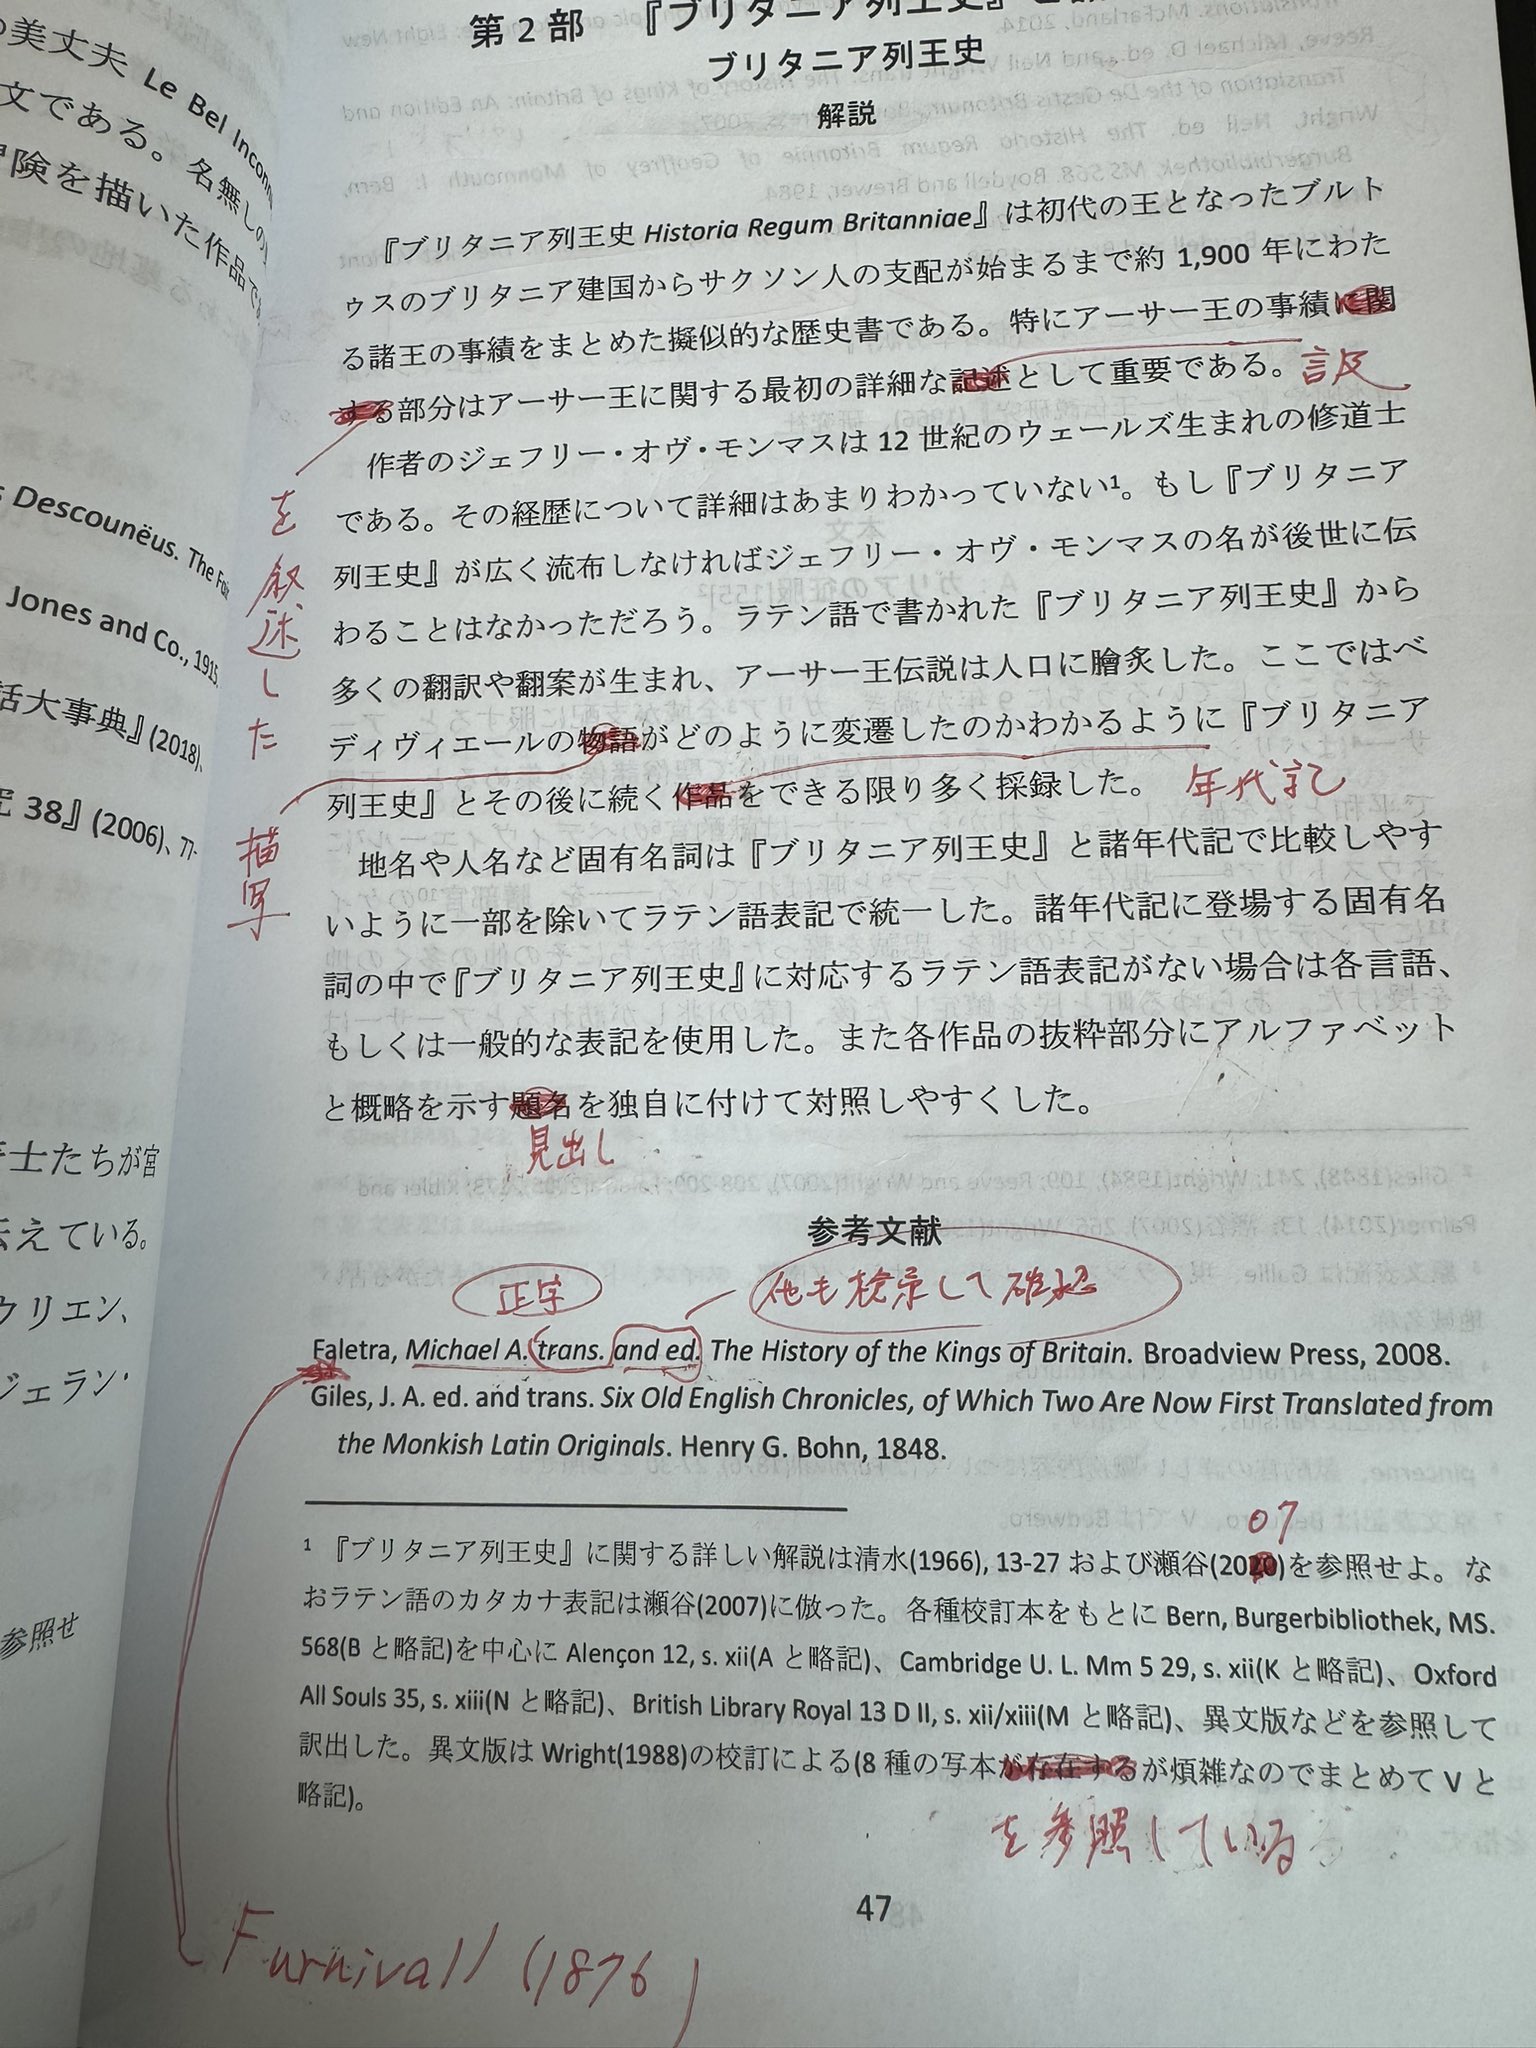 美丈夫 Le Bel Incon
文である。名無しの
険を描いた作品で
Descounëus. The
Jones and Co., 1915.
話大事典』(2018)、
38』(2006)、77-
士たちが宮
えている。
ウリエン、
ジェラン・
参照せ
第2部 『ブリタニア列王史』と
ブリタニア列王史
解説
『ブリタニア列王史 Historia Regum Britanniae』は初代の王となったブルト
ゥスのブリタニア建国からサクソン人の支配が始まるまで約 1,900 年にわた
る諸王の事績をまとめた擬似的な歴史書である。特にアーサー王の事績に関
する部分はアーサー王に関する最初の詳細な記述として重要である。
言及
作者のジェフリー・オヴ・モンマスは 12 世紀のウェールズ生まれの修道士
である。その経歴について詳細はあまりわかっていない1。もし『ブリタニア
を叙述した
列王史』が広く流布しなければジェフリー・オヴ・モンマスの名が後世に伝
わることはなかっただろう。ラテン語で書かれた『ブリタニア列王史』から
多くの翻訳や翻案が生まれ、アーサー王伝説は人口に膾炙した。ここではベ
ディヴィエールの物語がどのように変遷したのかわかるように『ブリタニア
列王史』とその後に続く作品をできる限り多く採録した。
年代記
描写
地名や人名など固有名詞は『ブリタニア列王史』と諸年代記で比較しやす
いように一部を除いてラテン語表記で統一した。諸年代記に登場する固有名
詞の中で『ブリタニア列王史』に対応するラテン語表記がない場合は各言語、
もしくは一般的な表記を使用した。また各作品の抜粋部分にアルファベット
と概略を示す題名を独自に付けて対照しやすくした。
見出し
参考文献
正字
他も検索して確認
Faletra, Michael A. trans. and ed. The History of the Kings of Britain. Broadview Press, 2008.
Giles, J. A. ed. and trans. Six Old English Chronicles, of Which Two Are Now First Translated from
the Monkish Latin Originals. Henry G. Bohn, 1848.
07
1 『ブリタニア列王史』に関する詳しい解説は清水(1966), 13-27 および瀬谷(2020)を参照せよ。な
おラテン語のカタカナ表記は瀬谷(2007)に倣った。各種校訂本をもとに Bern, Burgerbibliothek, MS.
568(B と略記)を中心に Alençon 12, s. xii(A と略記)、Cambridge U. L. Mm 5 29, s. xii(K と略記)、Oxford
All Souls 35, s. xiii(N と略記)、British Library Royal 13 D II, s. xii/xiii(M と略記)、異文版などを参照して
訳出した。異文版は Wright(1988)の校訂による(8 種の写本が存在するが煩雑なのでまとめて V と
略記)。
を参照している
47
Furnivall (1876)